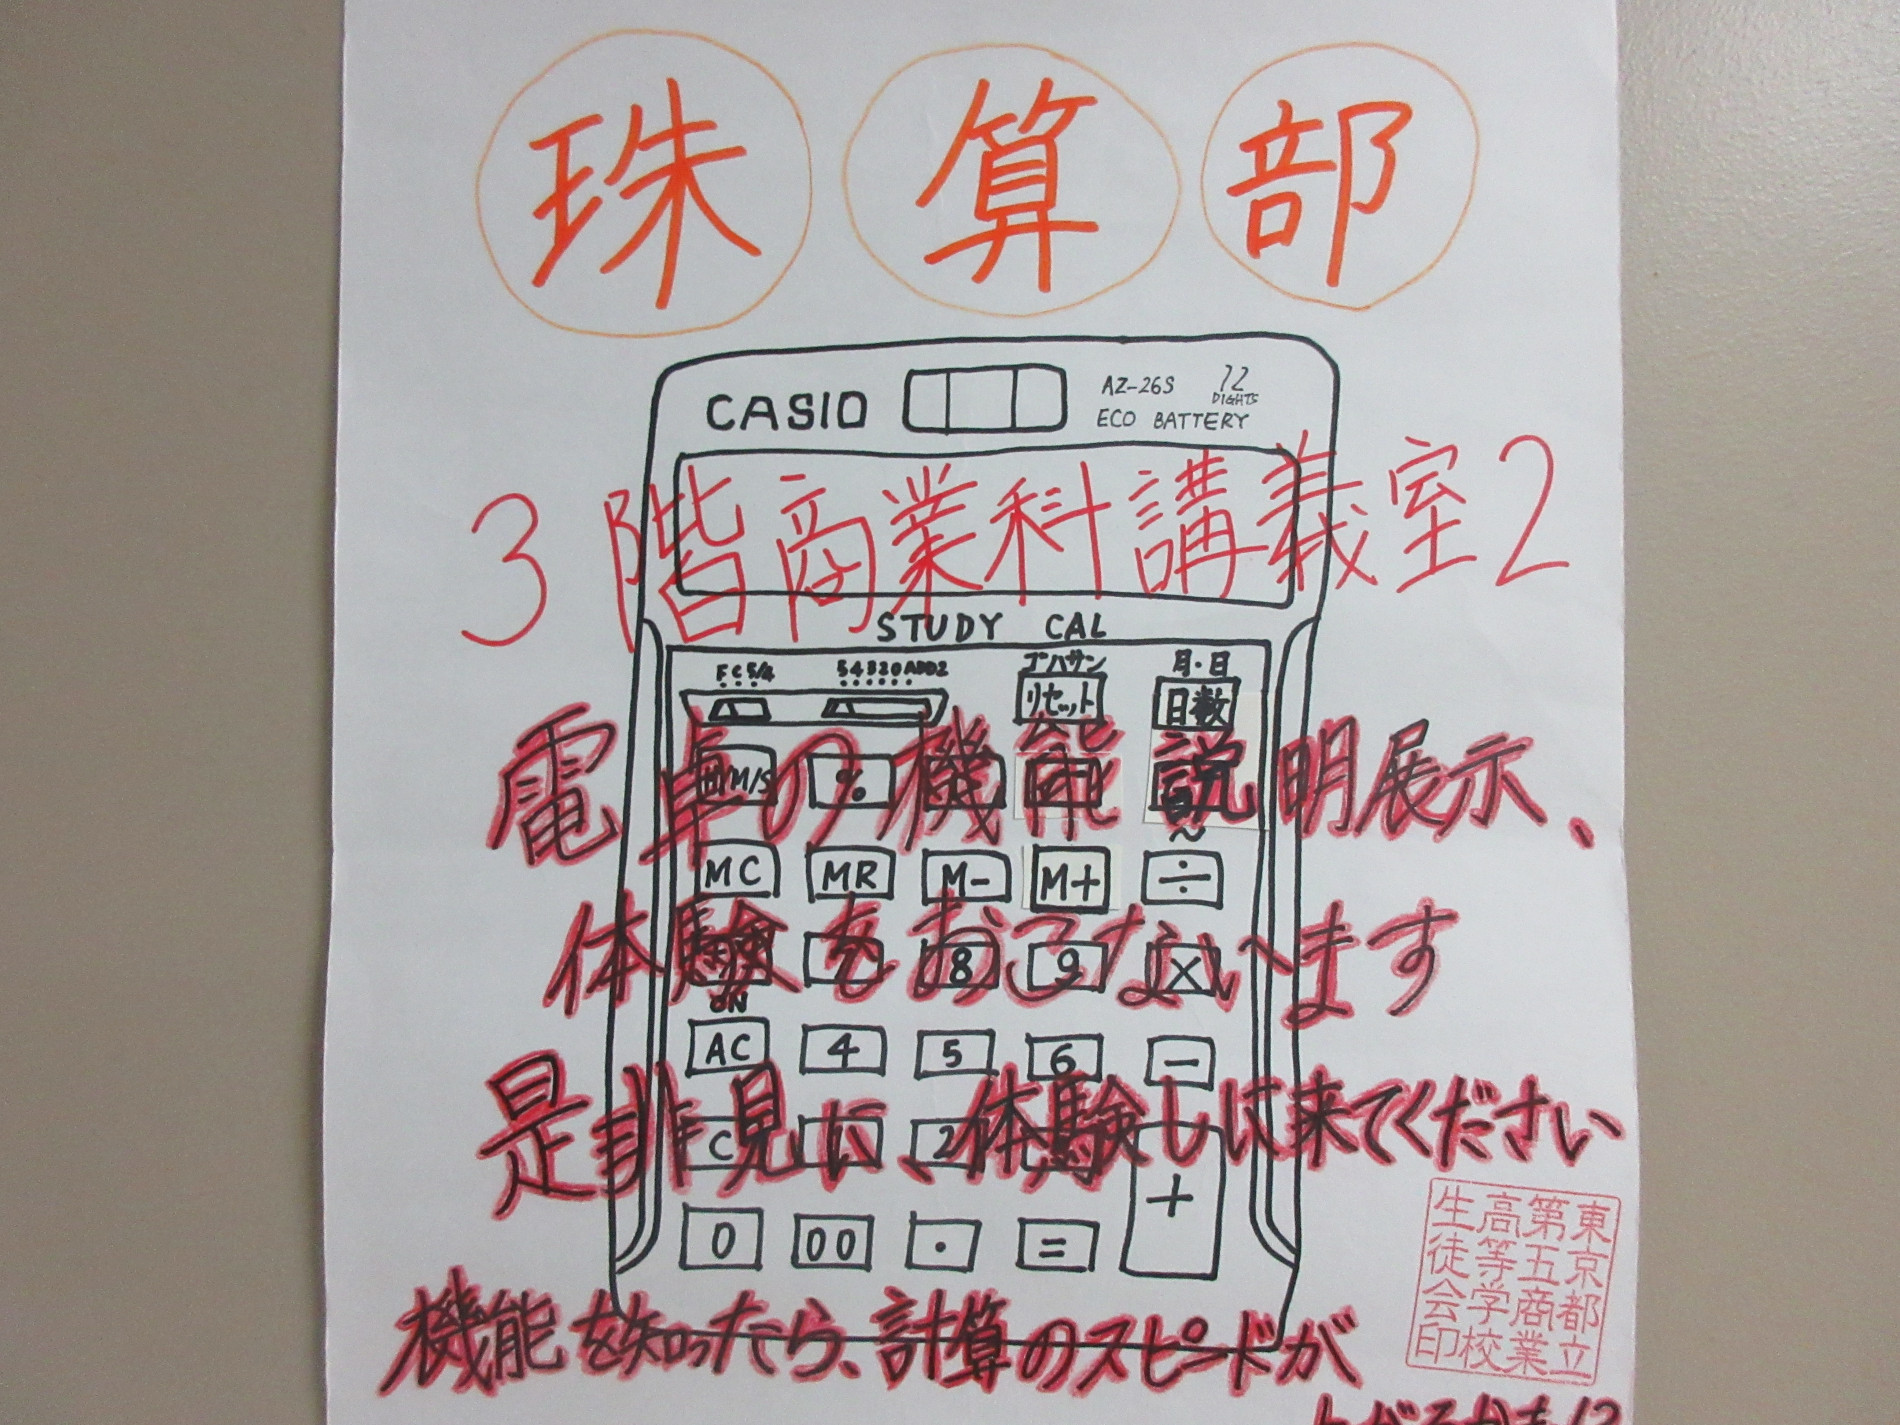 珠算部
CASIO
AZ-26S
12
DIGHTS
ECO BATTERY
3階商業科講義室2
STUDY CAL
F C 5/4
5 4 3 2 0 ADD2
ゴハサン
リセット
月・日
日数
電卓の機能説明展示、
%
MC MR M- M+ ÷
体験をおこないます
7 8 9 ×
ON
AC 4 5 6 -
是非見に、体験しに来てください
C 1 2
+
0 00 . =
機能を知ったら、計算のスピードが
東京都立
第五商業
高等学校
生徒会印